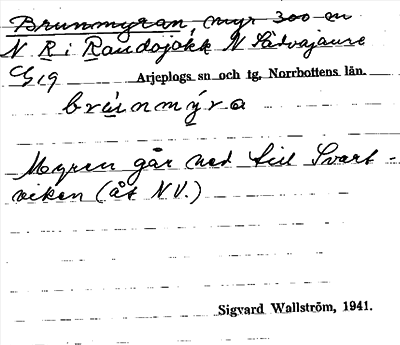 Brunmyran, myr 300 m
N R i Randojåkk N Sädvajaure
G19 Arjeplogs sn och tg, Norrbottens län.
brúnmýra
Myren går ned till Svart-
viken (åt NV.)
Sigvard Wallström, 1941.